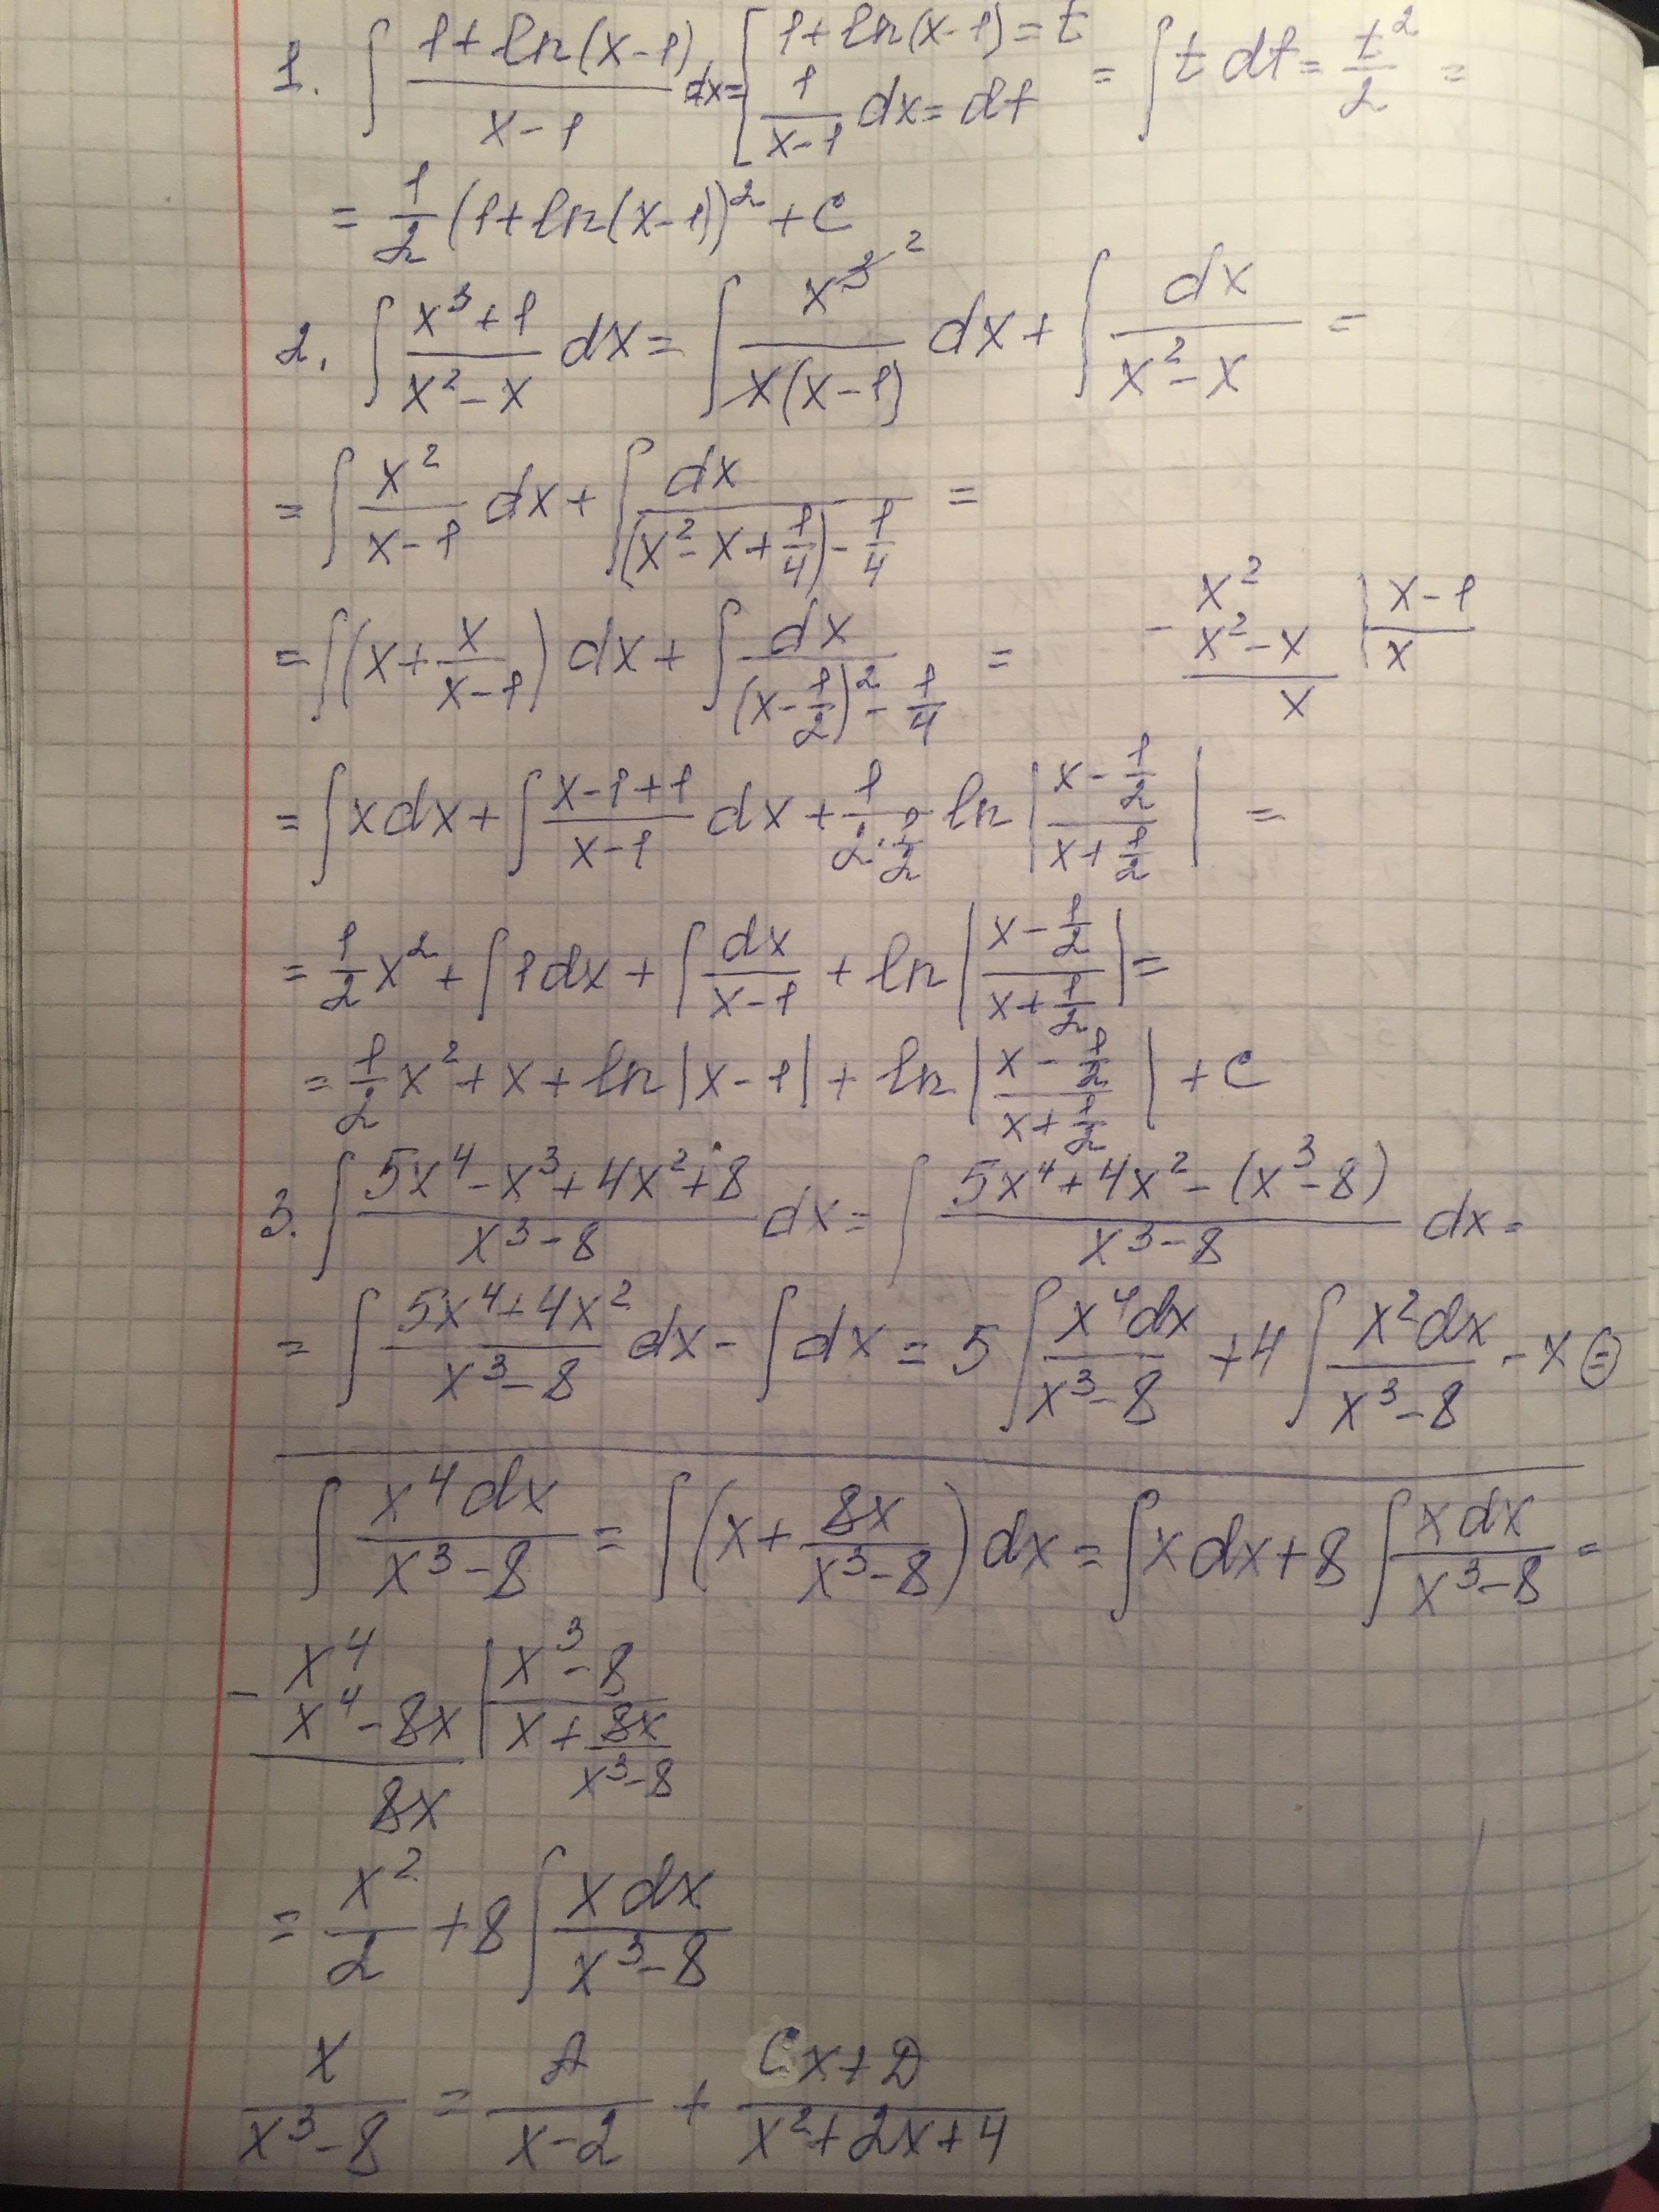 1. ∫ (1+ln(x-1))/(x-1) dx = [1+ln(x-1)=t; 1/(x-1) dx = dt = ∫ t dt = t²/2 =
= 1/2 (1+ln(x-1))² + C
2. ∫ (x³+1)/(x²-x) dx = ∫ x³ ²/(x(x-1)) dx + ∫ dx/(x²-x) =
= ∫ x²/(x-1) dx + ∫ dx/((x²-x+1/4)-1/4) =
= ∫ (x + x/(x-1)) dx + ∫ dx/((x-1/2)²-1/4) =
x² | x-1
- x²-x | x
x
= ∫ x dx + ∫ (x-1+1)/(x-1) dx + 1/(2·1/2) ln |(x-1/2)/(x+1/2)| =
= 1/2 x² + ∫ 1 dx + ∫ dx/(x-1) + ln |(x-1/2)/(x+1/2)| =
= 1/2 x² + x + ln|x-1| + ln |(x-1/2)/(x+1/2)| + C
3. ∫ (5x⁴-x³+4x²+8)/(x³-8) dx = ∫ (5x⁴+4x²-(x³-8))/(x³-8) dx =
= ∫ (5x⁴+4x²)/(x³-8) dx - ∫ dx = 5 ∫ x⁴dx/(x³-8) + 4 ∫ x²dx/(x³-8) - x ⊜
∫ x⁴dx/(x³-8) = ∫ (x + 8x/(x³-8)) dx = ∫ x dx + 8 ∫ x dx/(x³-8) =
x⁴ | x³-8
- x⁴-8x | x + 8x/(x³-8)
8x
= x²/2 + 8 ∫ x dx/(x³-8)
x/(x³-8) = A/(x-2) + (Cx+D)/(x²+2x+4)